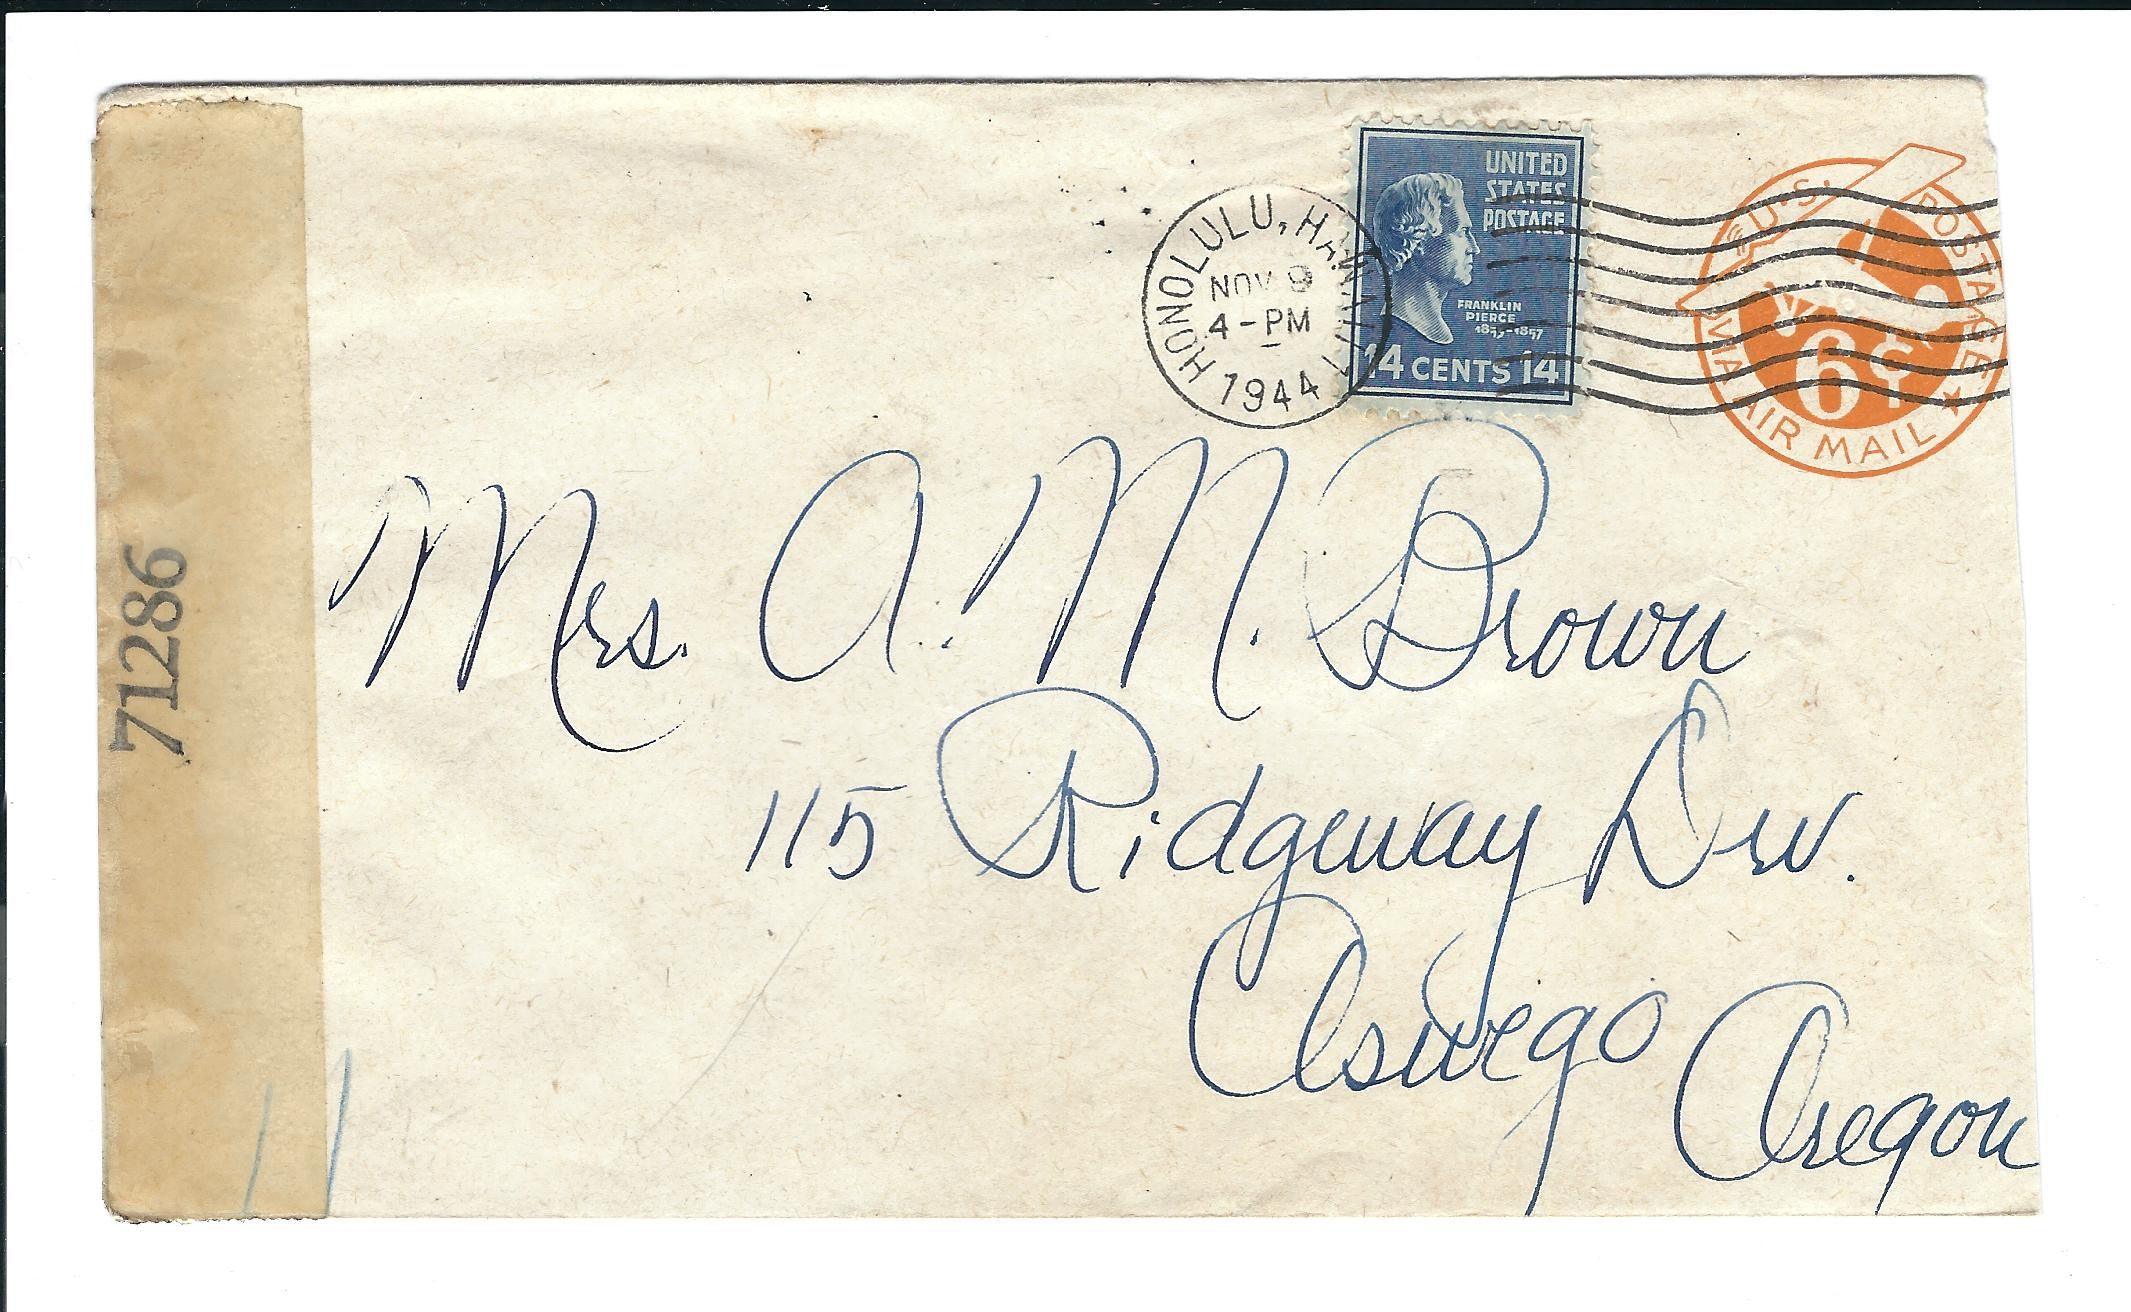 HONOLULU, HAWAII
NOV 9
4-PM
1944
UNITED
STATES
POSTAGE
FRANKLIN
PIERCE
1853-1857
14 CENTS 14
U.S. POSTAGE
6¢
VIA AIR MAIL
71286
Mrs. A. M. Brown
115 Ridgeway Dr.
Oswego
Oregon